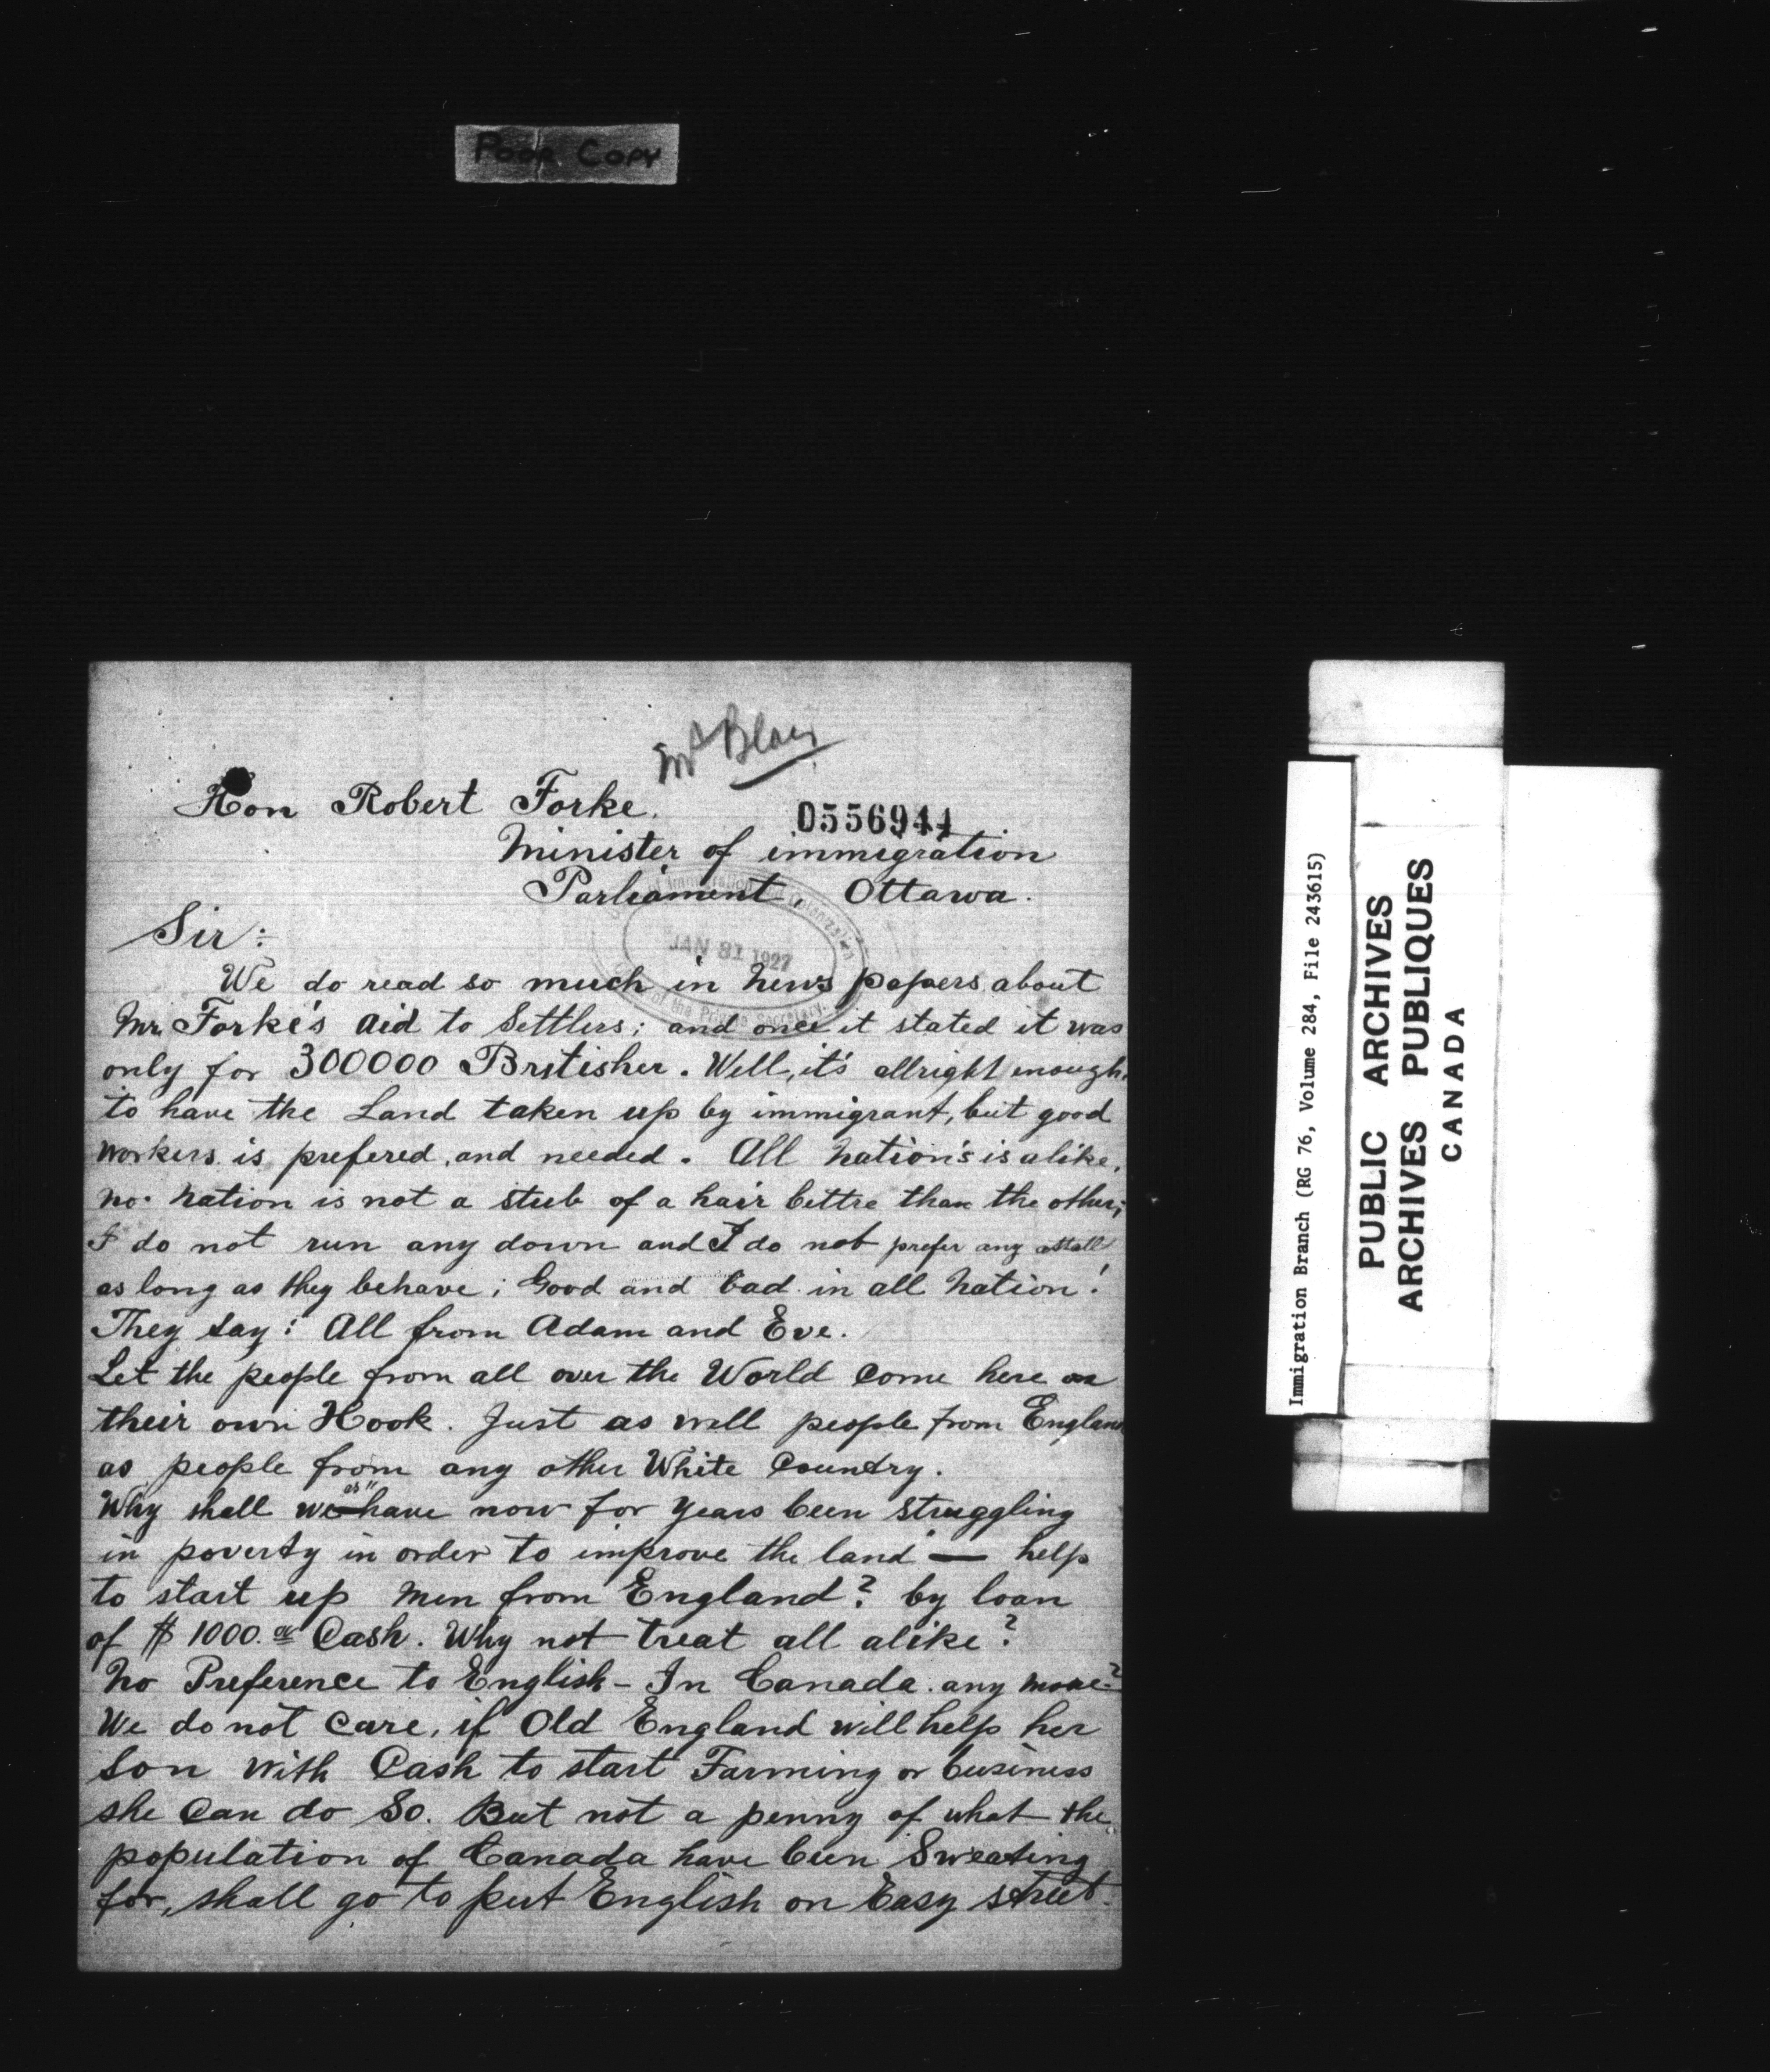 Poor Copy
Mr Blair
Hon Robert Forke.
0556944
Minister of immigration
Parliament, Ottawa.
Immigration and Colonization
JAN 31 1927
of the Private Secretary
Sir:
We do read so much in News papers about
Mr. Forke's aid to Settlers; and once it stated it was
only for 300000 Britisher. Well, it's allright enough
to have the Land taken up by immigrant, but good
workers is prefered, and needed. All Nation's is alike,
no. Nation is not a stub of a hair bettre than the other;
I do not run any down and I do not prefer any attall
as long as they behave; Good and bad in all Nation!
They say: All from Adam and Eve.
Let the people from all over the World come here on
their own Hook. Just as well people from England
as people from any other White Country.
Why shall we "as" have now for years been struggling
in poverty in order to improve the land — help
to start up men from England? by loan
of $ 1000.00 Cash. Why not treat all alike?
No Preference to English - In Canada. any more?
We do not care, if Old England will help her
son with Cash to start Farming or business
she can do so. But not a penny of what the
population of Canada have been Sweating
for, shall go to put English on Easy street.
Immigration Branch (RG 76, Volume 284, File 243615)
PUBLIC ARCHIVES
ARCHIVES PUBLIQUES
CANADA